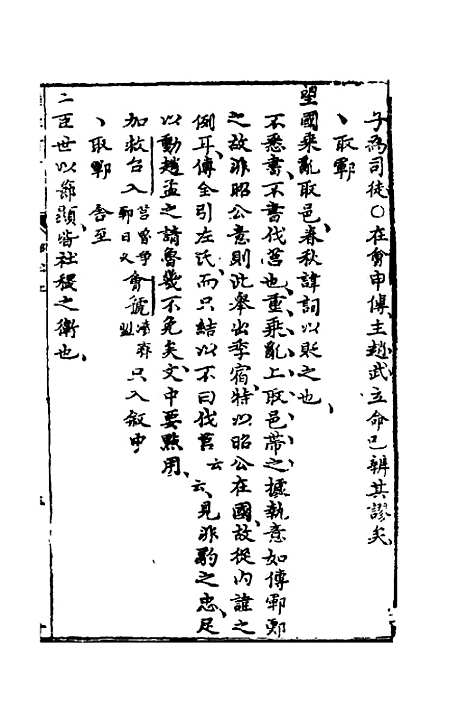 子為司徒○在會申傳主趙武立命已辨其謬矣
、取鄆
望國乘亂取邑春秋諱詞以貶之也
不悉書不書伐莒也重乘亂上取邑帶之據執意如傳鄆鄭
之故非昭公意則此舉出季宿特以昭公在國故從內諱之
例耳傳全引左氏而只結以不曰伐莒云云見非豹之忠足
以動趙孟之請魯幾不免矣文中要點用
加救台入鄆日入莒魯爭會虢只入敘中
、取鄆 舍至
二臣世以鄰顯皆社稷之衛也